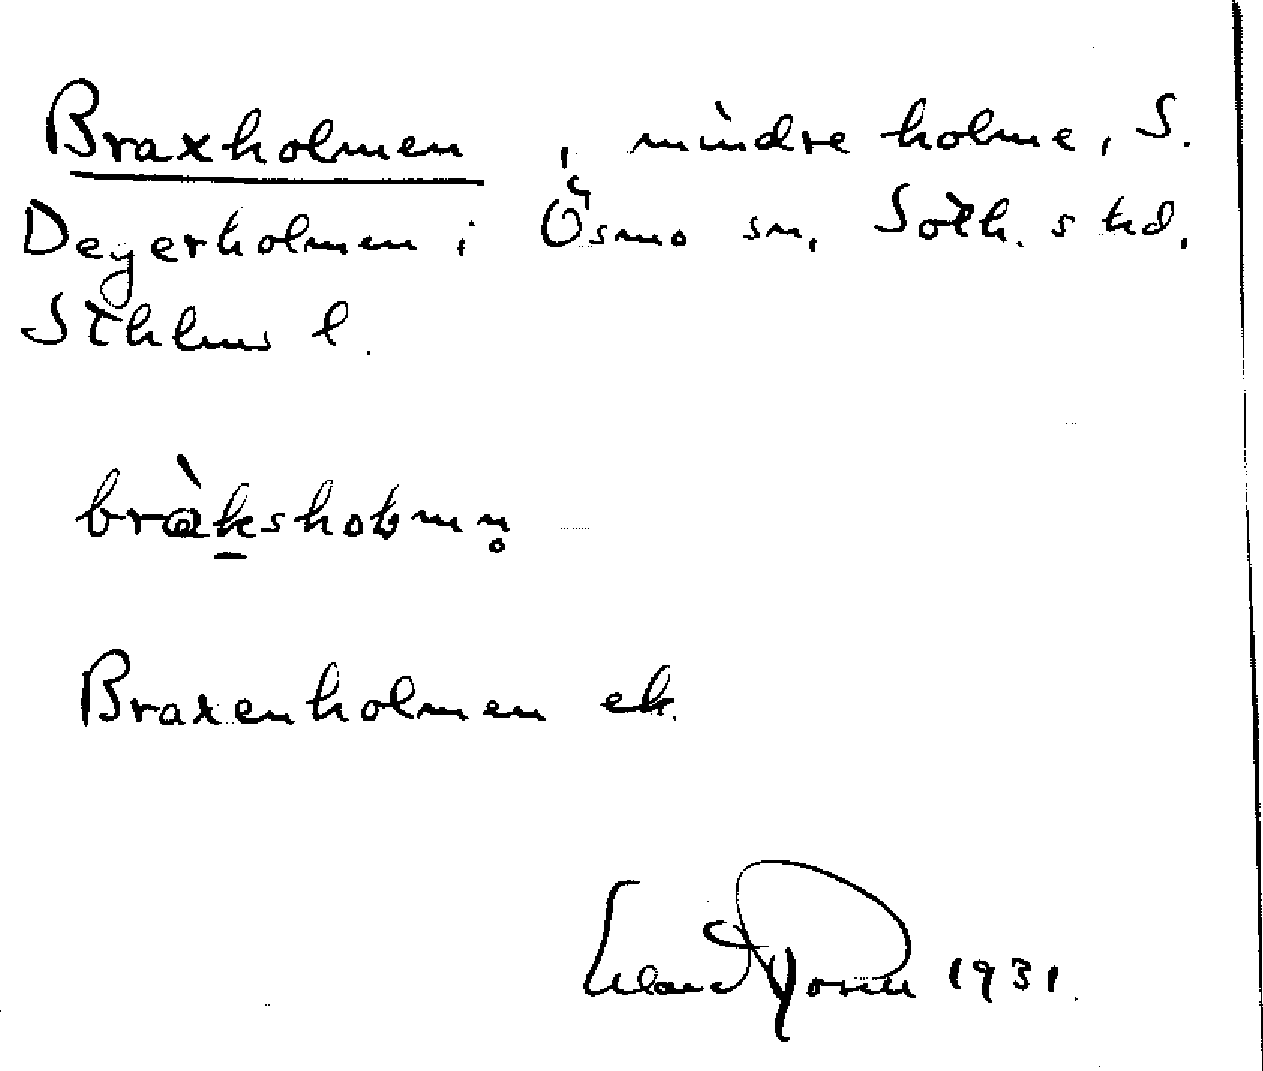 Braxholmen, mindre holme, S.
Degerholmen i Ösmo sn, Soth. s hd,
Sthlms l.
bràksholmn̥
Braxenholmen ek.
Erland Rosell 1931.